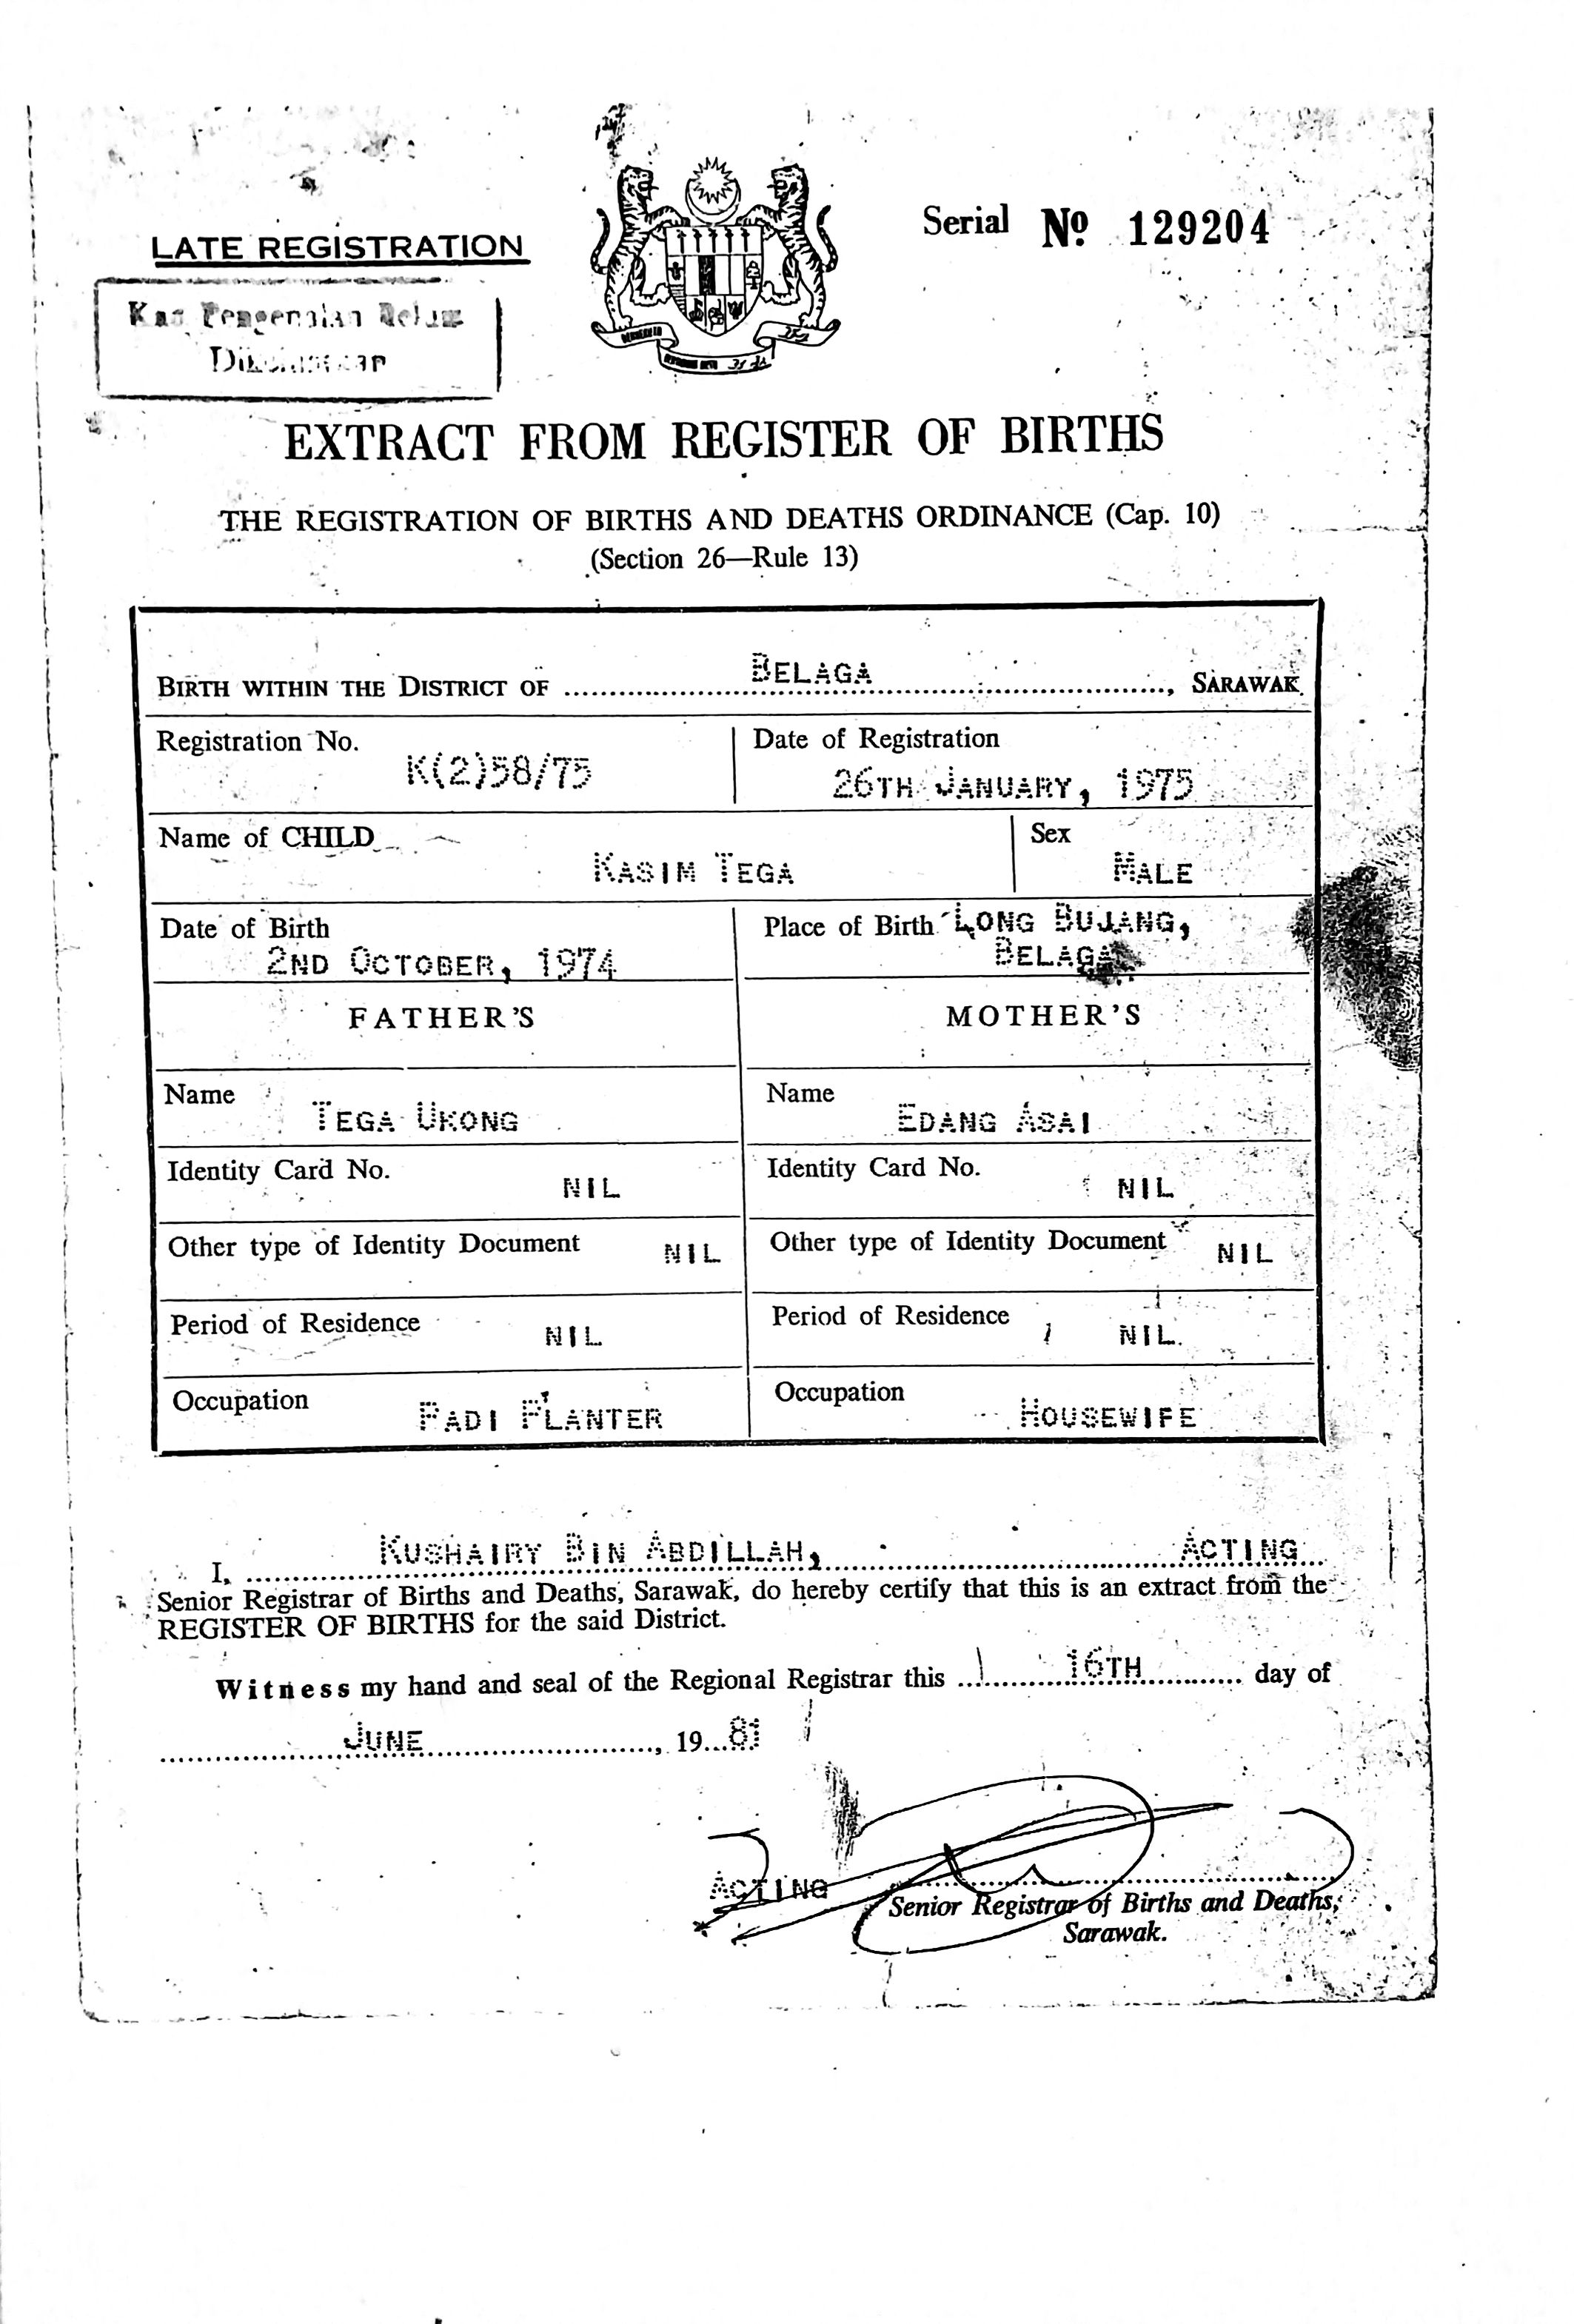 LATE REGISTRATION
Serial Nº 129204
Kad Pengenalan Belum
EXTRACT FROM REGISTER OF BIRTHS
THE REGISTRATION OF BIRTHS AND DEATHS ORDINANCE (Cap. 10)
(Section 26—Rule 13)
BIRTH WITHIN THE DISTRICT OF BELAGA, SARAWAK
Registration No. K(2)58/75
Date of Registration 26TH JANUARY, 1975
Name of CHILD KASIM TEGA
Sex MALE
Date of Birth 2ND OCTOBER, 1974
Place of Birth LONG BUJANG,
BELAGA
FATHER'S
MOTHER'S
Name TEGA UKONG
Name EDANG ASAI
Identity Card No. NIL
Identity Card No. NIL
Other type of Identity Document NIL
Other type of Identity Document NIL
Period of Residence NIL
Period of Residence NIL.
Occupation PADI PLANTER
Occupation HOUSEWIFE
I, KUSHAIRY BIN ABDILLAH, ACTING
Senior Registrar of Births and Deaths, Sarawak, do hereby certify that this is an extract from the
REGISTER OF BIRTHS for the said District.
Witness my hand and seal of the Regional Registrar this 16TH day of
JUNE, 19 81
ACTING
Senior Registrar of Births and Deaths,
Sarawak.